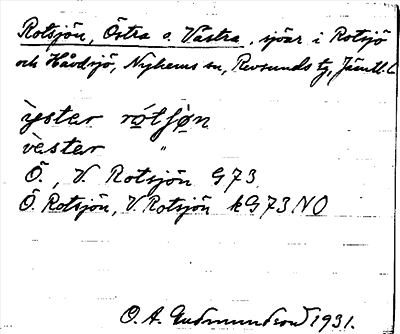 Rotsjön, Östra o. Västra, sjöar i Rotsjö
och Håvdsjö, Nyhems sn, Revsunds tg, Jämtl. l.
ỳster rótſøn
vèster "
Ö., V. Rotsjön G73
Ö. Rotsjön, V. Rotsjön kG73NO
O. A. Gudmundson 1931.